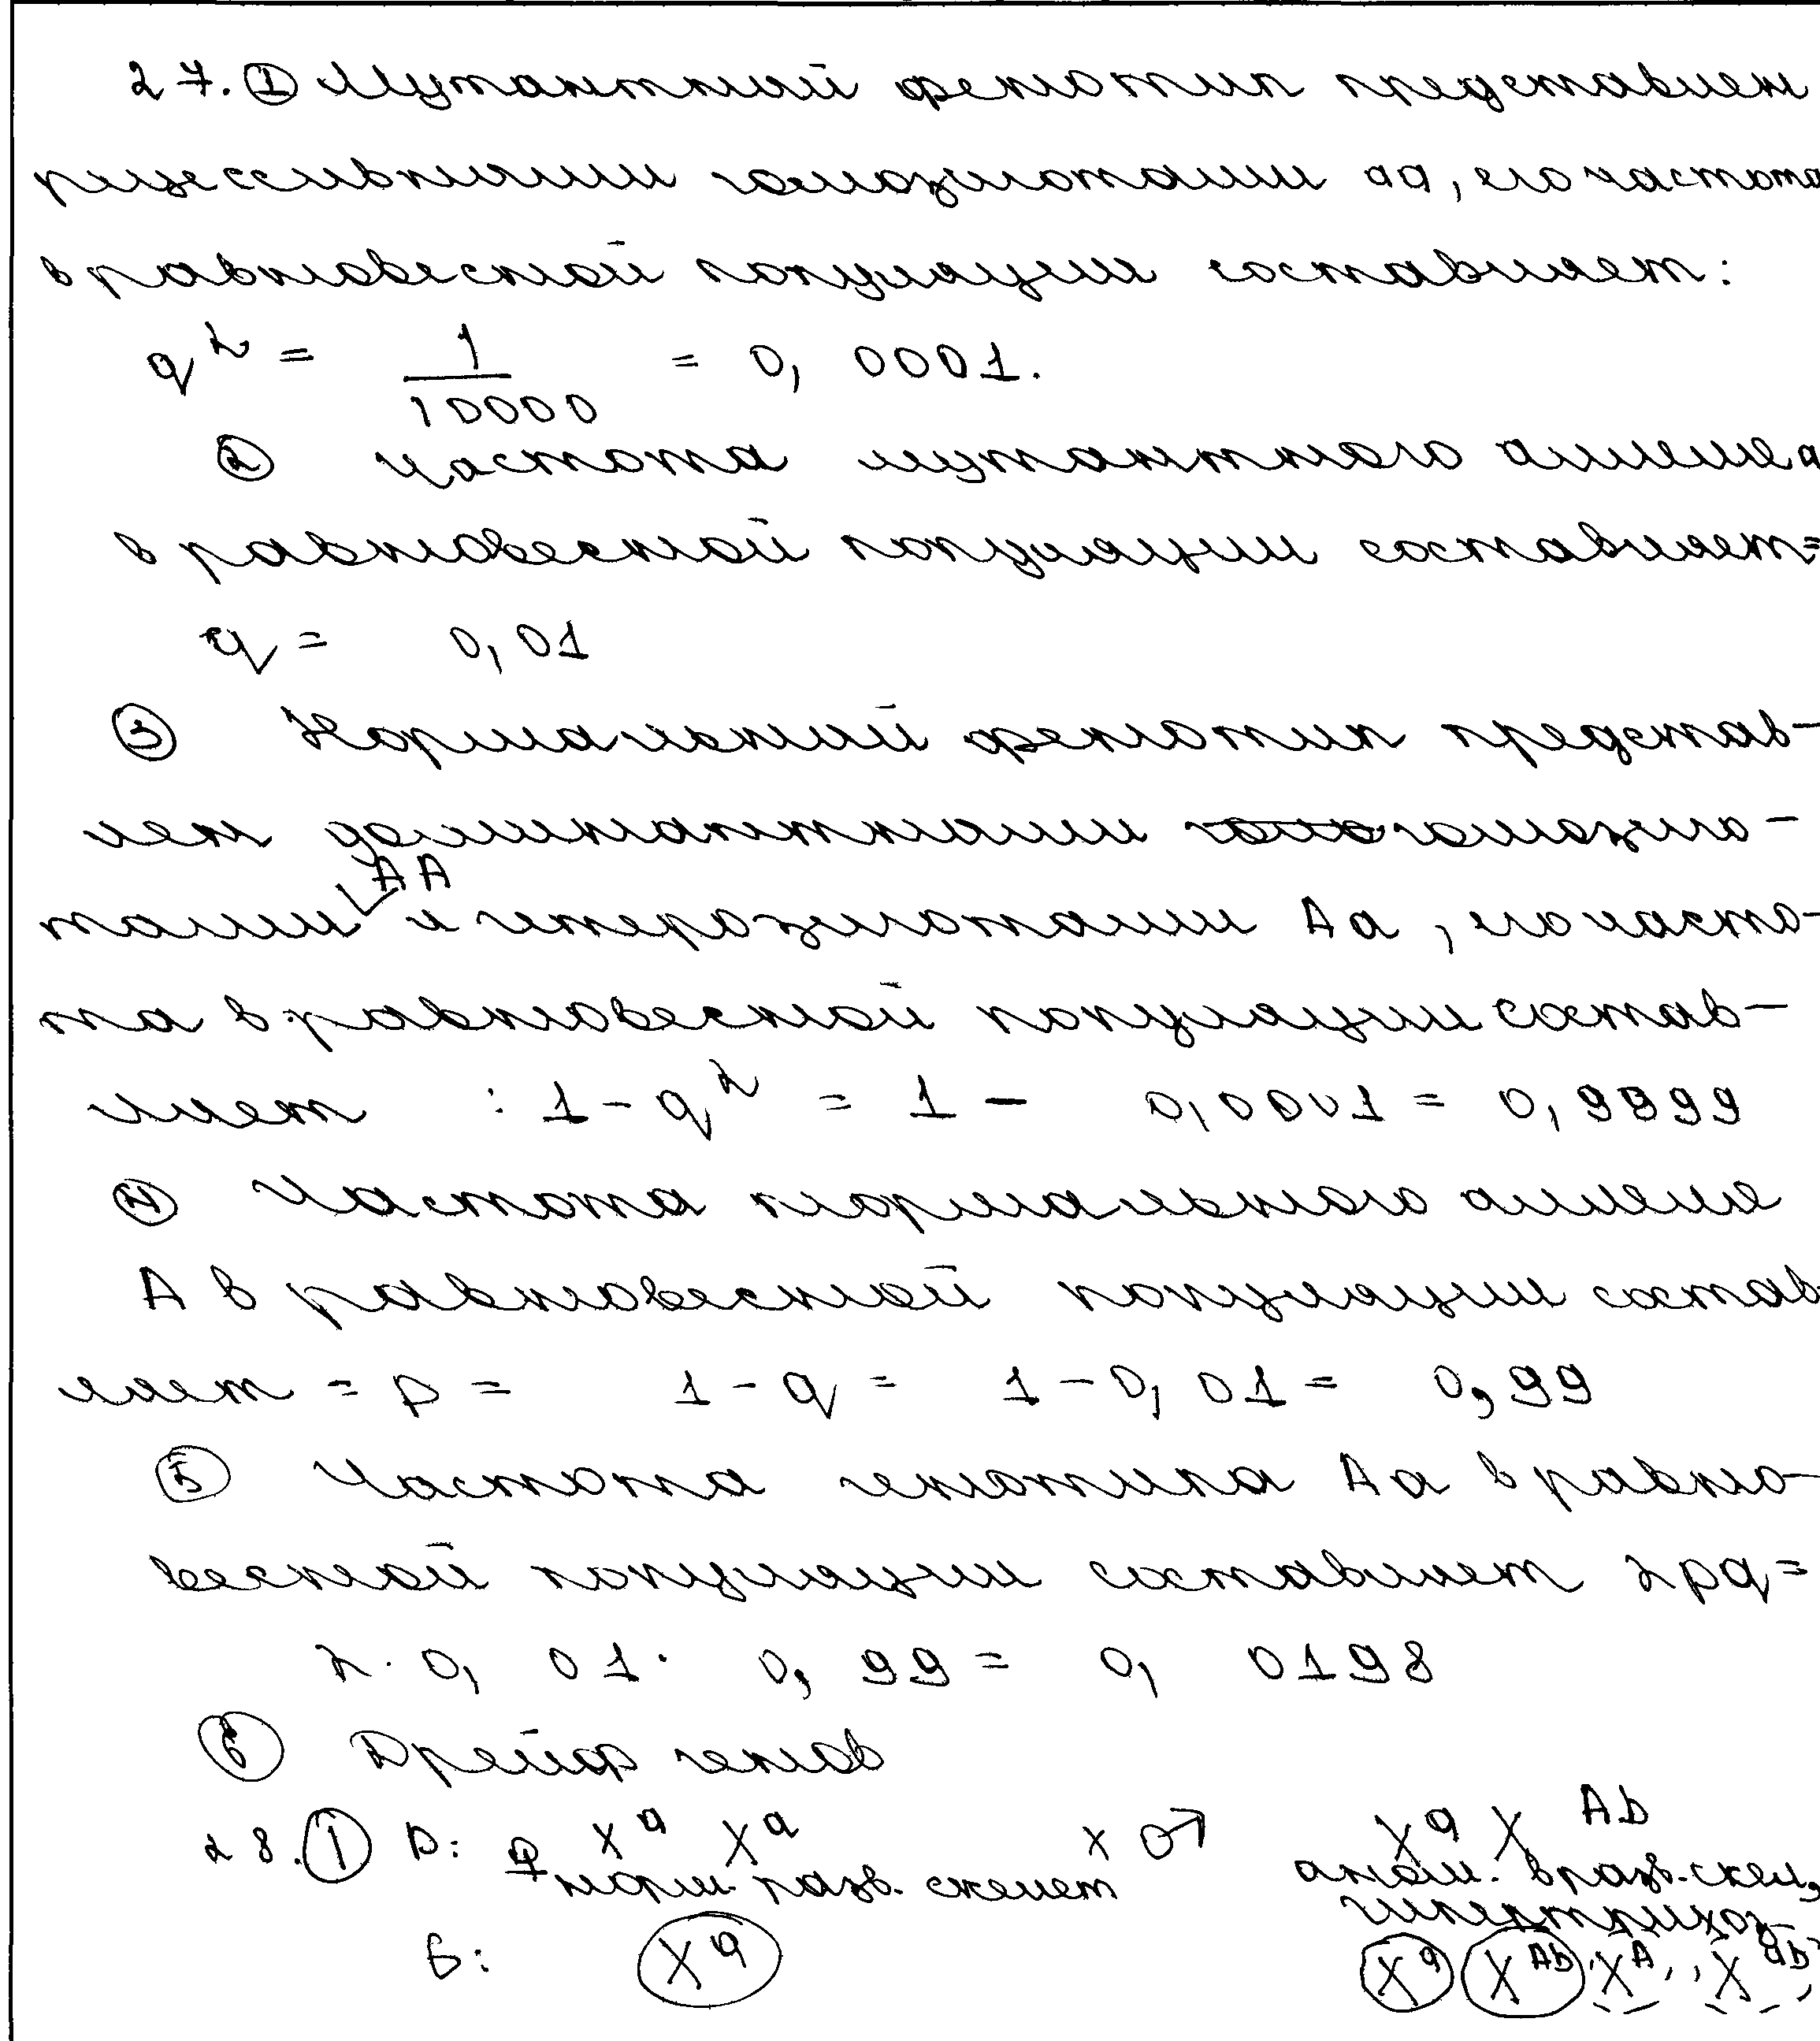 27. ① Мутантный фенотип представлен
рецессивными гомозиготами aa, его частота
в равновесной популяции составляет:
q² = 1/10000 = 0,0001.
② Частота мутантного аллеля a
в равновесной популяции составляет:
q = 0,01
③ Нормальный фенотип представ-
лен доминантными гомозиго-
тами AA и гетерозиготами Aa, его часто-
та в равновесной популяции состав-
ляет : 1 - q² = 1 - 0,0001 = 0,9999
④ Частота нормального аллеля
A в равновесной популяции состав
ляет = p = 1 - q = 1 - 0,01 = 0,99
⑤ Частота генотипа Aa в равно-
весной популяции составляет 2pq =
2 · 0,01 · 0,99 = 0,0198
⑥ Дрейф генов
28. ① P: ♀ XᵃXᵃ x ♂ XᵃXᴬᵇ
норм. разв. скелет аном. в разв. скел,
гипертрихоз
G: Xᵃ Xᵃ Xᴬᵇ, Xᴬ, Xᵃᵇ,